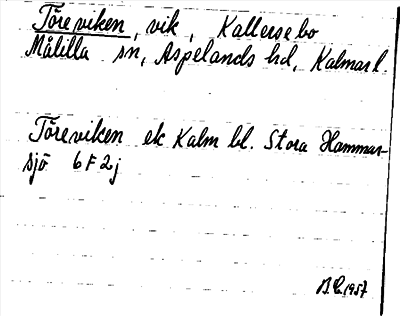 Töreviken, vik, Kallersebo
Målilla sn, Aspelands hd, Kalmar l.
Töreviken ek Kalm bl. Stora Hammar-
sjö 6F2j
B.E. 1957